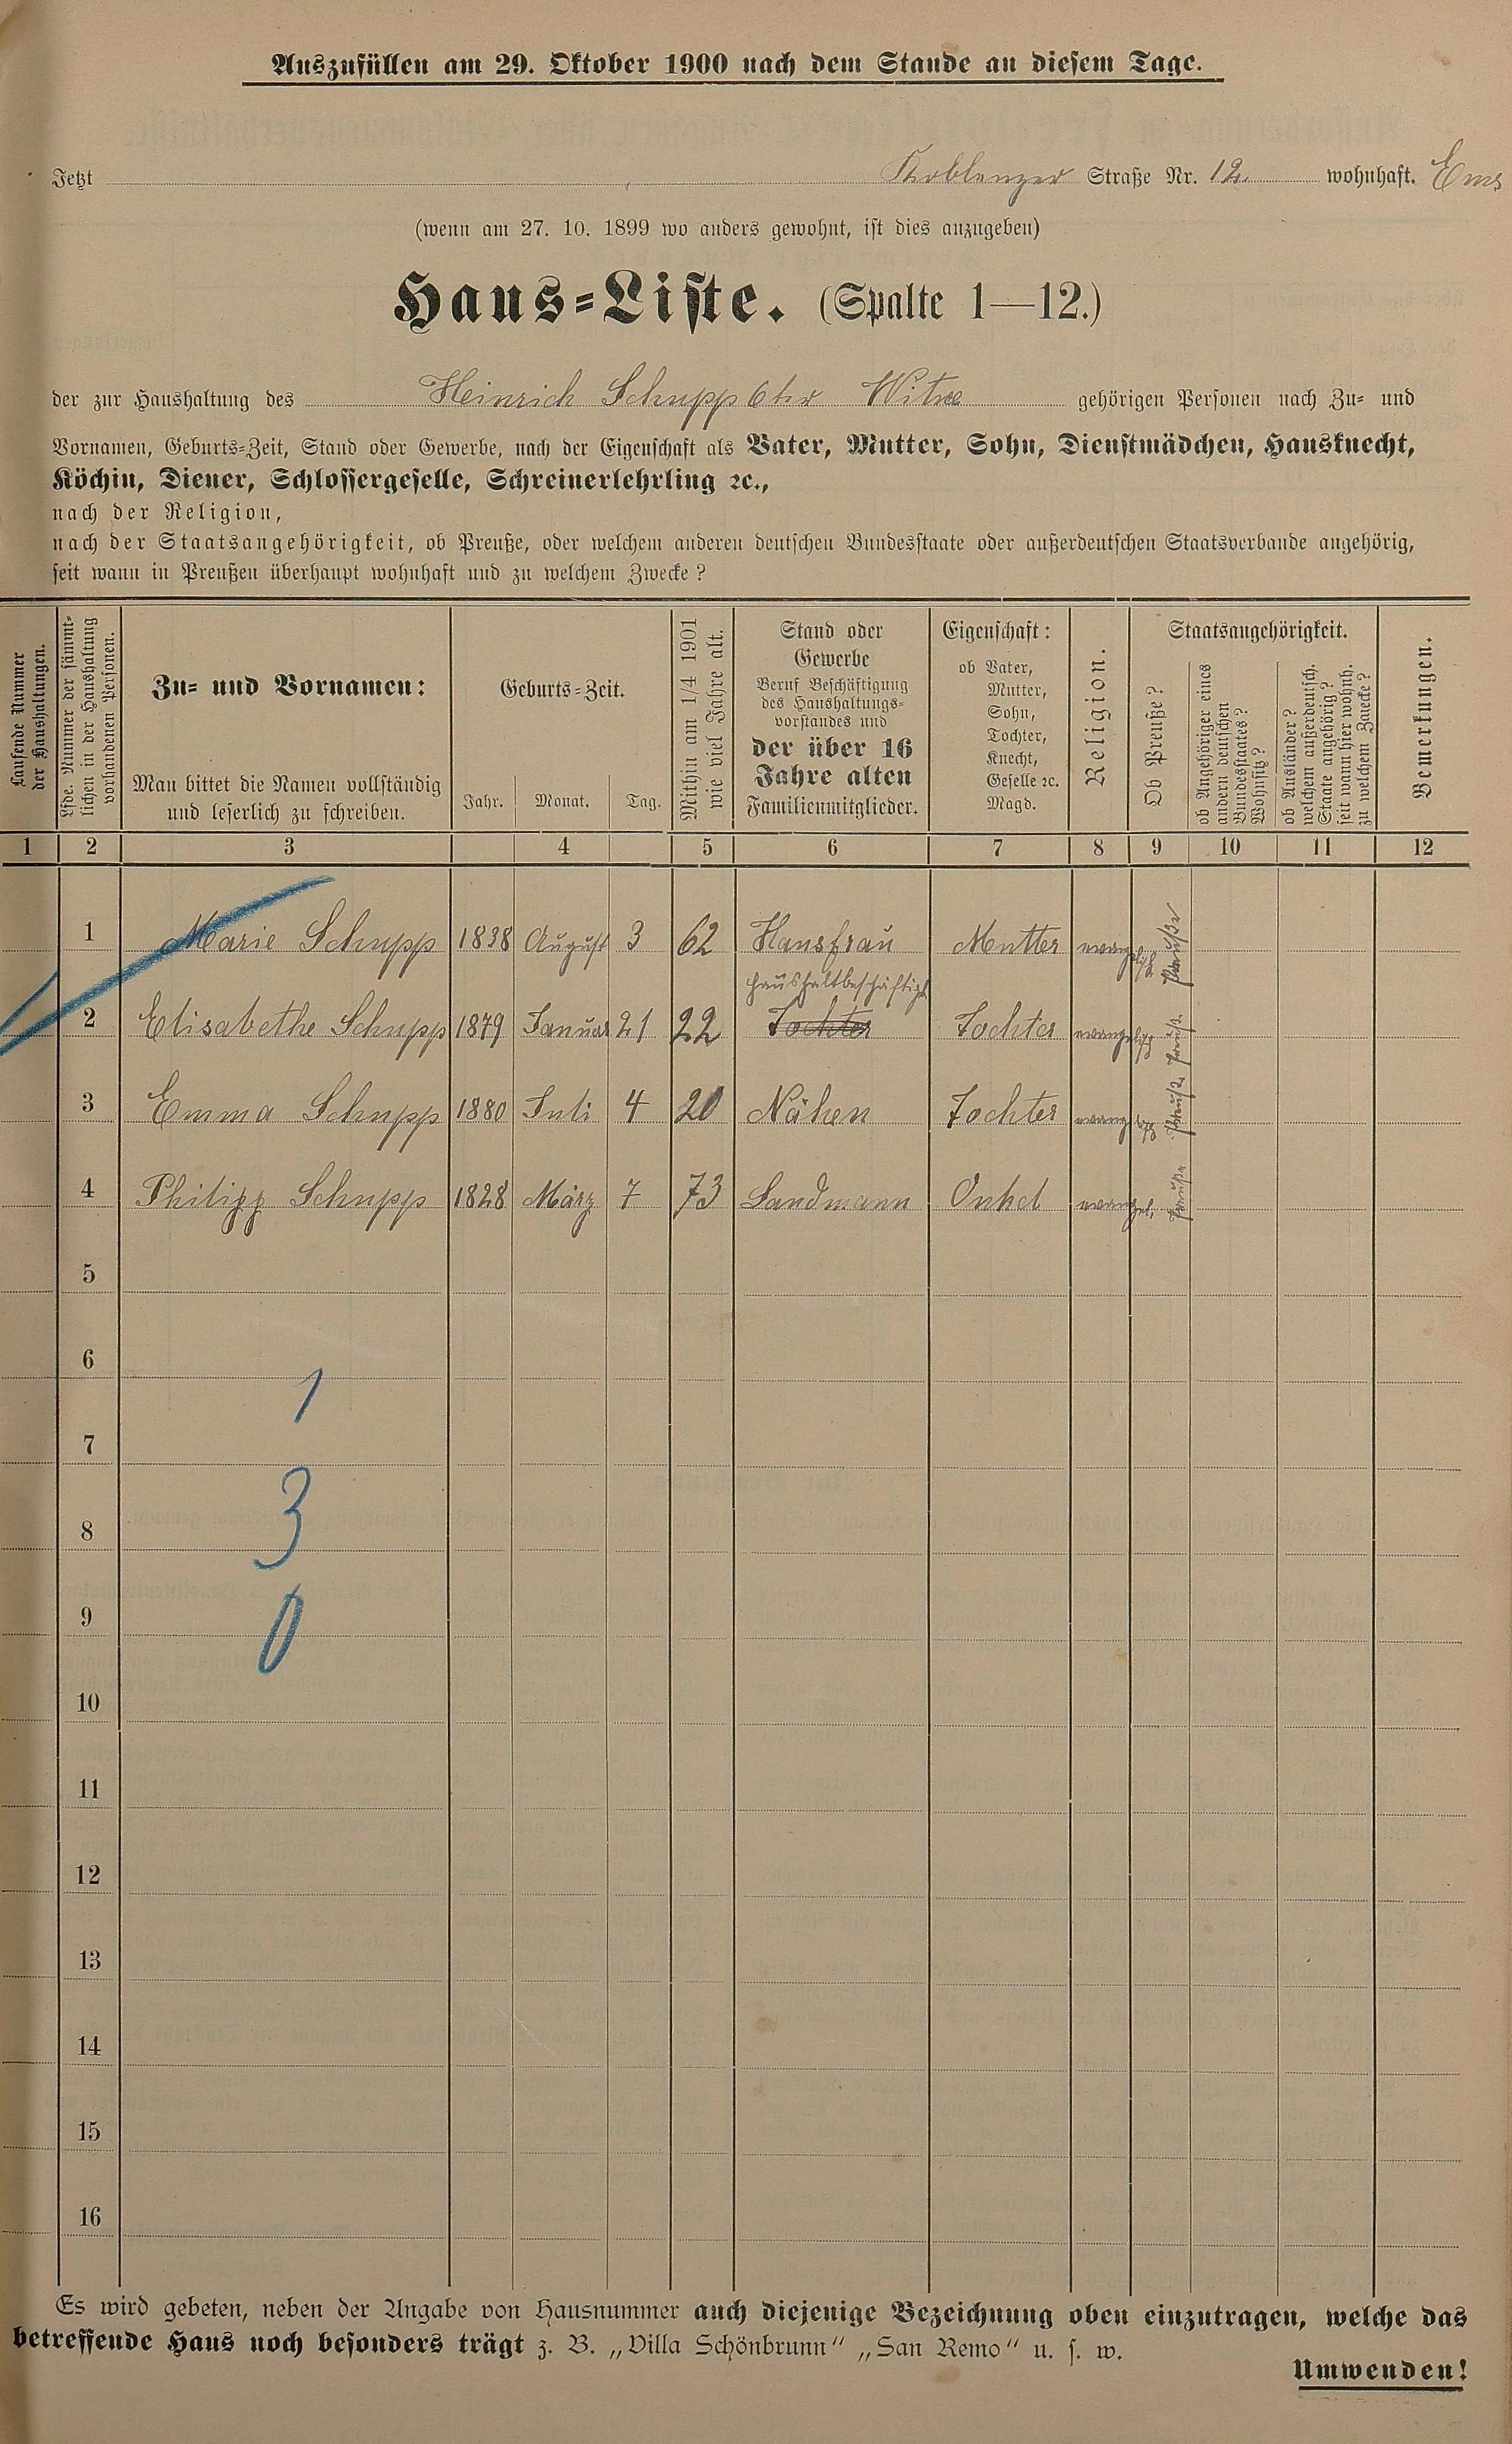 Auszufüllen am 29. Oktober 1900 nach dem Stande an diesem Tage.
Jetzt Koblenzer Straße Nr. 12. wohnhaft. Ems
(wenn am 27. 10. 1899 wo anders gewohnt, ist dies anzugeben)
Haus-Liste. (Spalte 1—12.)
der zur Haushaltung des Heinrich Schupp 6ter Witwe gehörigen Personen nach Zu- und
Vornamen, Geburts-Zeit, Stand oder Gewerbe, nach der Eigenschaft als Vater, Mutter, Sohn, Dienstmädchen, Hausknecht,
Köchin, Diener, Schlossergeselle, Schreinerlehrling ꝛc.,
nach der Religion,
nach der Staatsangehörigkeit, ob Preuße, oder welchem anderen deutschen Bundesstaate oder außerdeutschen Staatsverbande angehörig,
seit wann in Preußen überhaupt wohnhaft und zu welchem Zwecke?
Laufende Nummer
der Haushaltungen.
Lfde. Nummer der sämmt-
lichen in der Haushaltung
vorhandenen Personen.
Zu- und Vornamen:
Man bittet die Namen vollständig
und leserlich zu schreiben.
Geburts-Zeit.
Jahr. Monat. Tag.
Mithin am 1/4 1901
wie viel Jahre alt.
Stand oder
Gewerbe
Beruf Beschäftigung
des Haushaltungs-
vorstandes und
der über 16
Jahre alten
Familienmitglieder.
Eigenschaft:
ob Vater,
Mutter,
Sohn,
Tochter,
Knecht,
Geselle ꝛc.
Magd.
Religion.
Staatsangehörigkeit.
Ob Preuße?
ob Angehöriger eines
andern deutschen
Bundesstaates?
Wohnsitz?
ob Ausländer?
welchem außerdeutsch.
Staate angehörig?
seit wann hier wohnh.
zu welchem Zwecke?
Bemerkungen.
1 2 3 4 5 6 7 8 9 10 11 12
1 Marie Schupp 1838 August 3 62 Hausfrau Mutter evangelisch Preuße
haushaltbeschäftigt
2 Elisabethe Schupp 1879 Januar 21 22 Tochter Tochter evangelisch Preuß.
3 Emma Schupp 1880 Juli 4 20 Nähen Tochter evangelisch Preuße
4 Philipp Schupp 1828 März 7 73 Landmann Onkel evangel. Preuße
5
6
1
7
3
8
0
9
10
11
12
13
14
15
16
Es wird gebeten, neben der Angabe von Hausnummer auch diejenige Bezeichnung oben einzutragen, welche das
betreffende Haus noch besonders trägt z. B. „Villa Schönbrunn“ „San Remo“ u. s. w.
Umwenden!